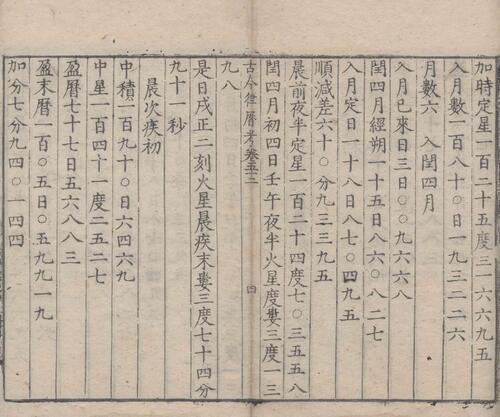 加時定星一百二十五度三一六六九五
入月數一百八十〇日一九三二二六
月數六　入閏四月
入月已來日三日〇〇九六六八
閏四月經朔一十五日八六〇八二七
入月定日一十八日八七〇四九五
順減差六十〇分九三三九五
晨前夜半定星一百二十四度七〇三五五八
閏四月初四日壬午夜半火星度婁三度一三
古今律曆考卷五十三　四
九八
是日戌正二刻火星晨疾末婁三度七十四分
九十一秒
晨次疾初
中積一百九十〇日六四六九
中星一百四十一度二五二七
盈曆七十七日五六八八三
盈末曆一百〇五日〇五九九一九
加分七分九四〇一四四